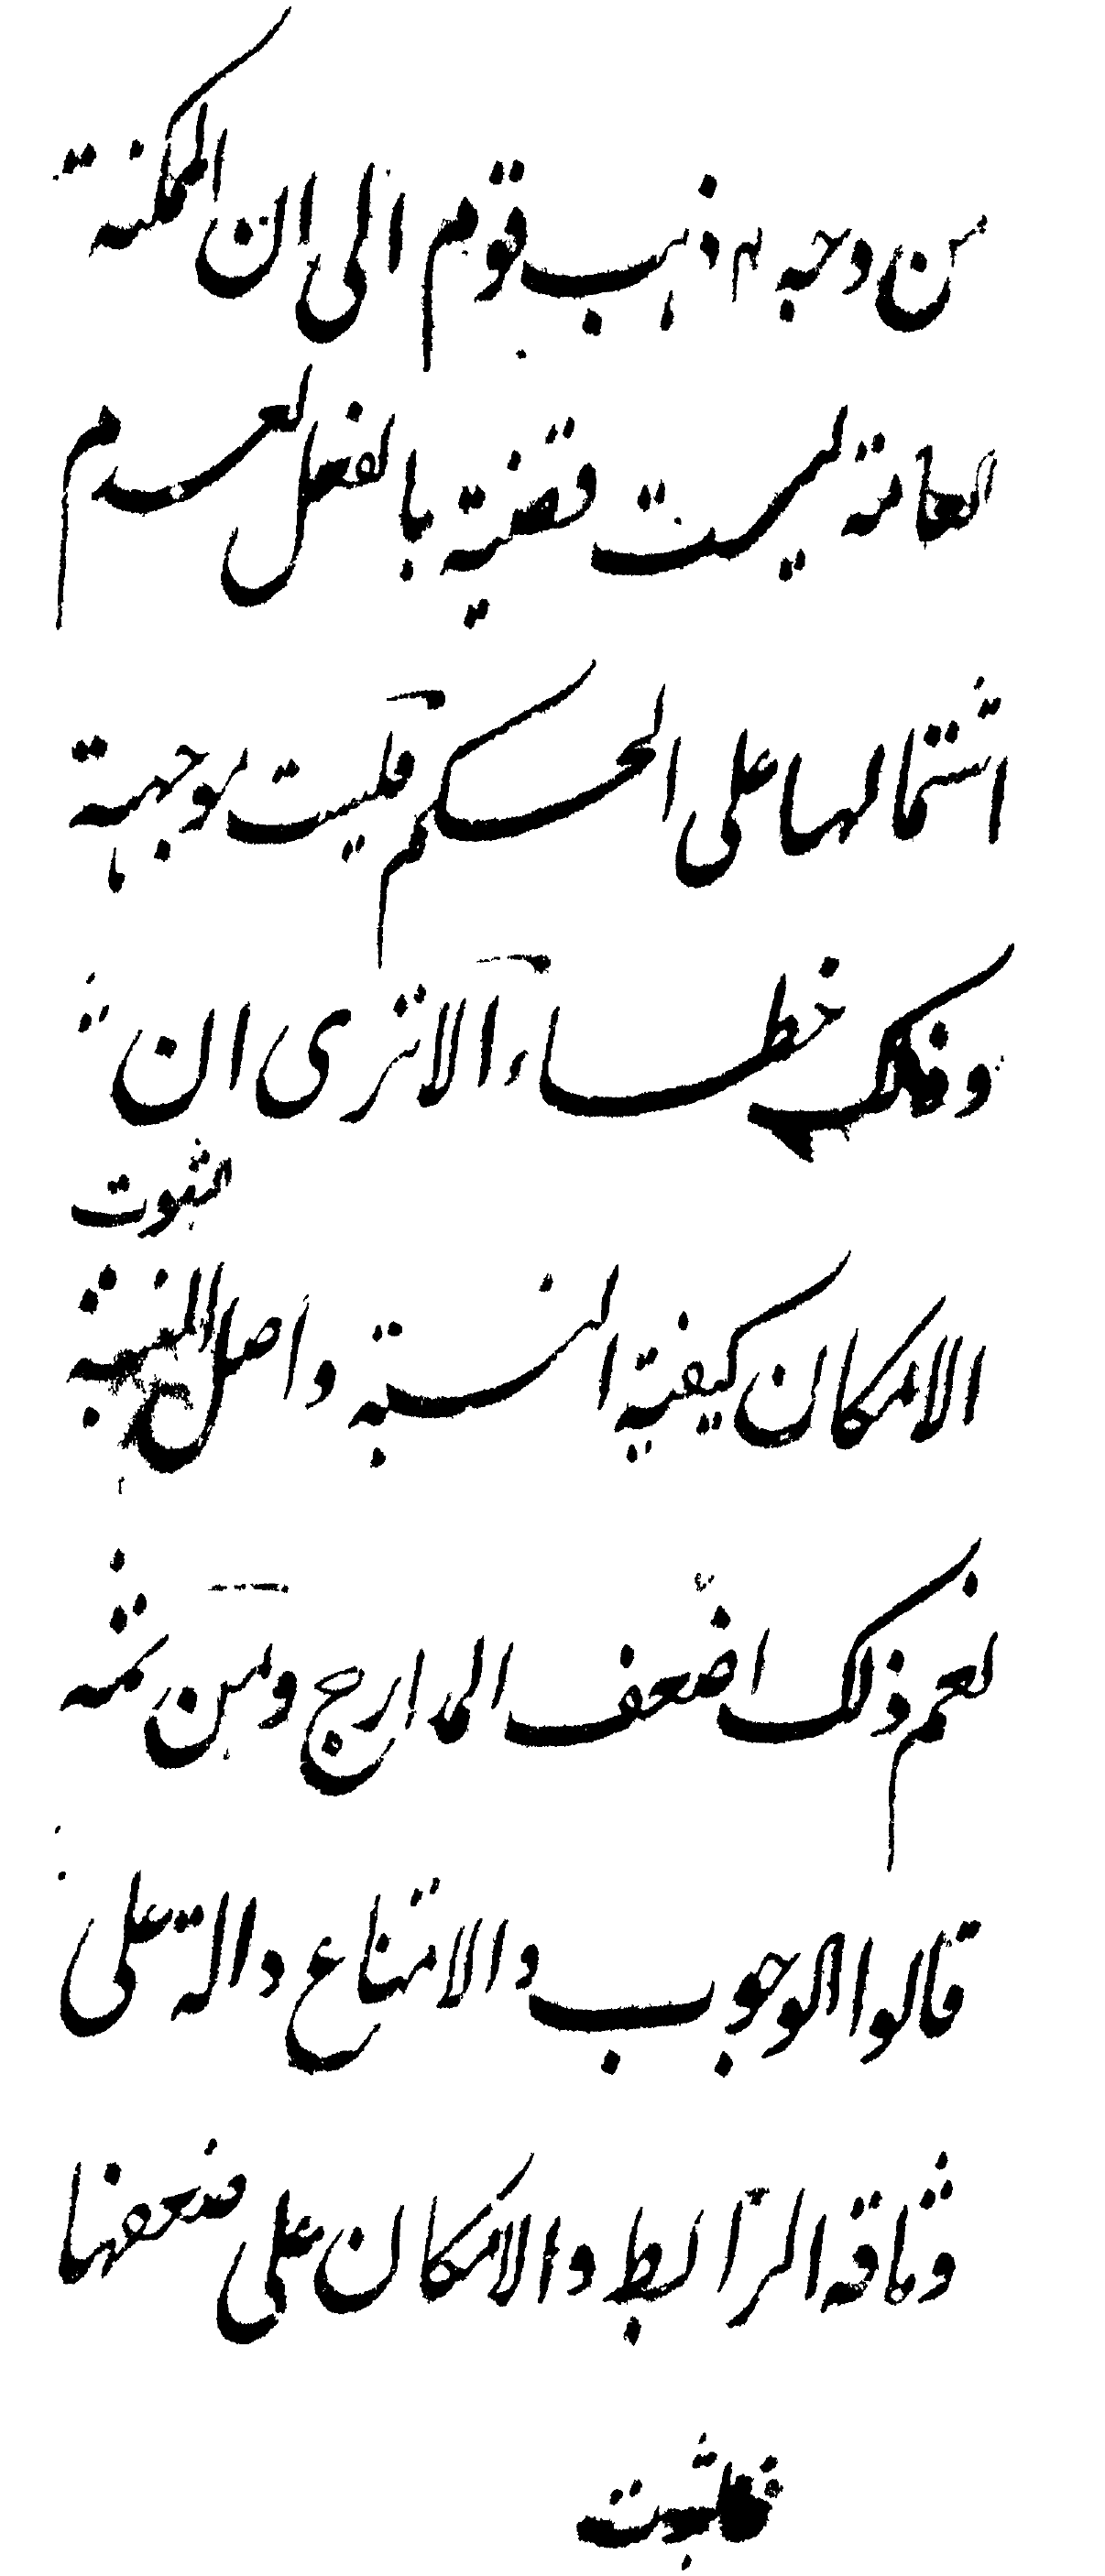 من وجه ٣ ذهب قوم الى ان الممكنة
العامة ليست قضية بالفعل لعدم
اشتمالها على الحكم فليست موجهة
وذلك خطاء الا ترى ان
الامكان كيفية النسبة واصل النسبة
الثبوت
نعم ذلك اضعف المدارج ومن ثمه
قالوا الوجوب والامتناع دالة على
وثاقة الرابط والامكان على ضعفها
فالثبوت